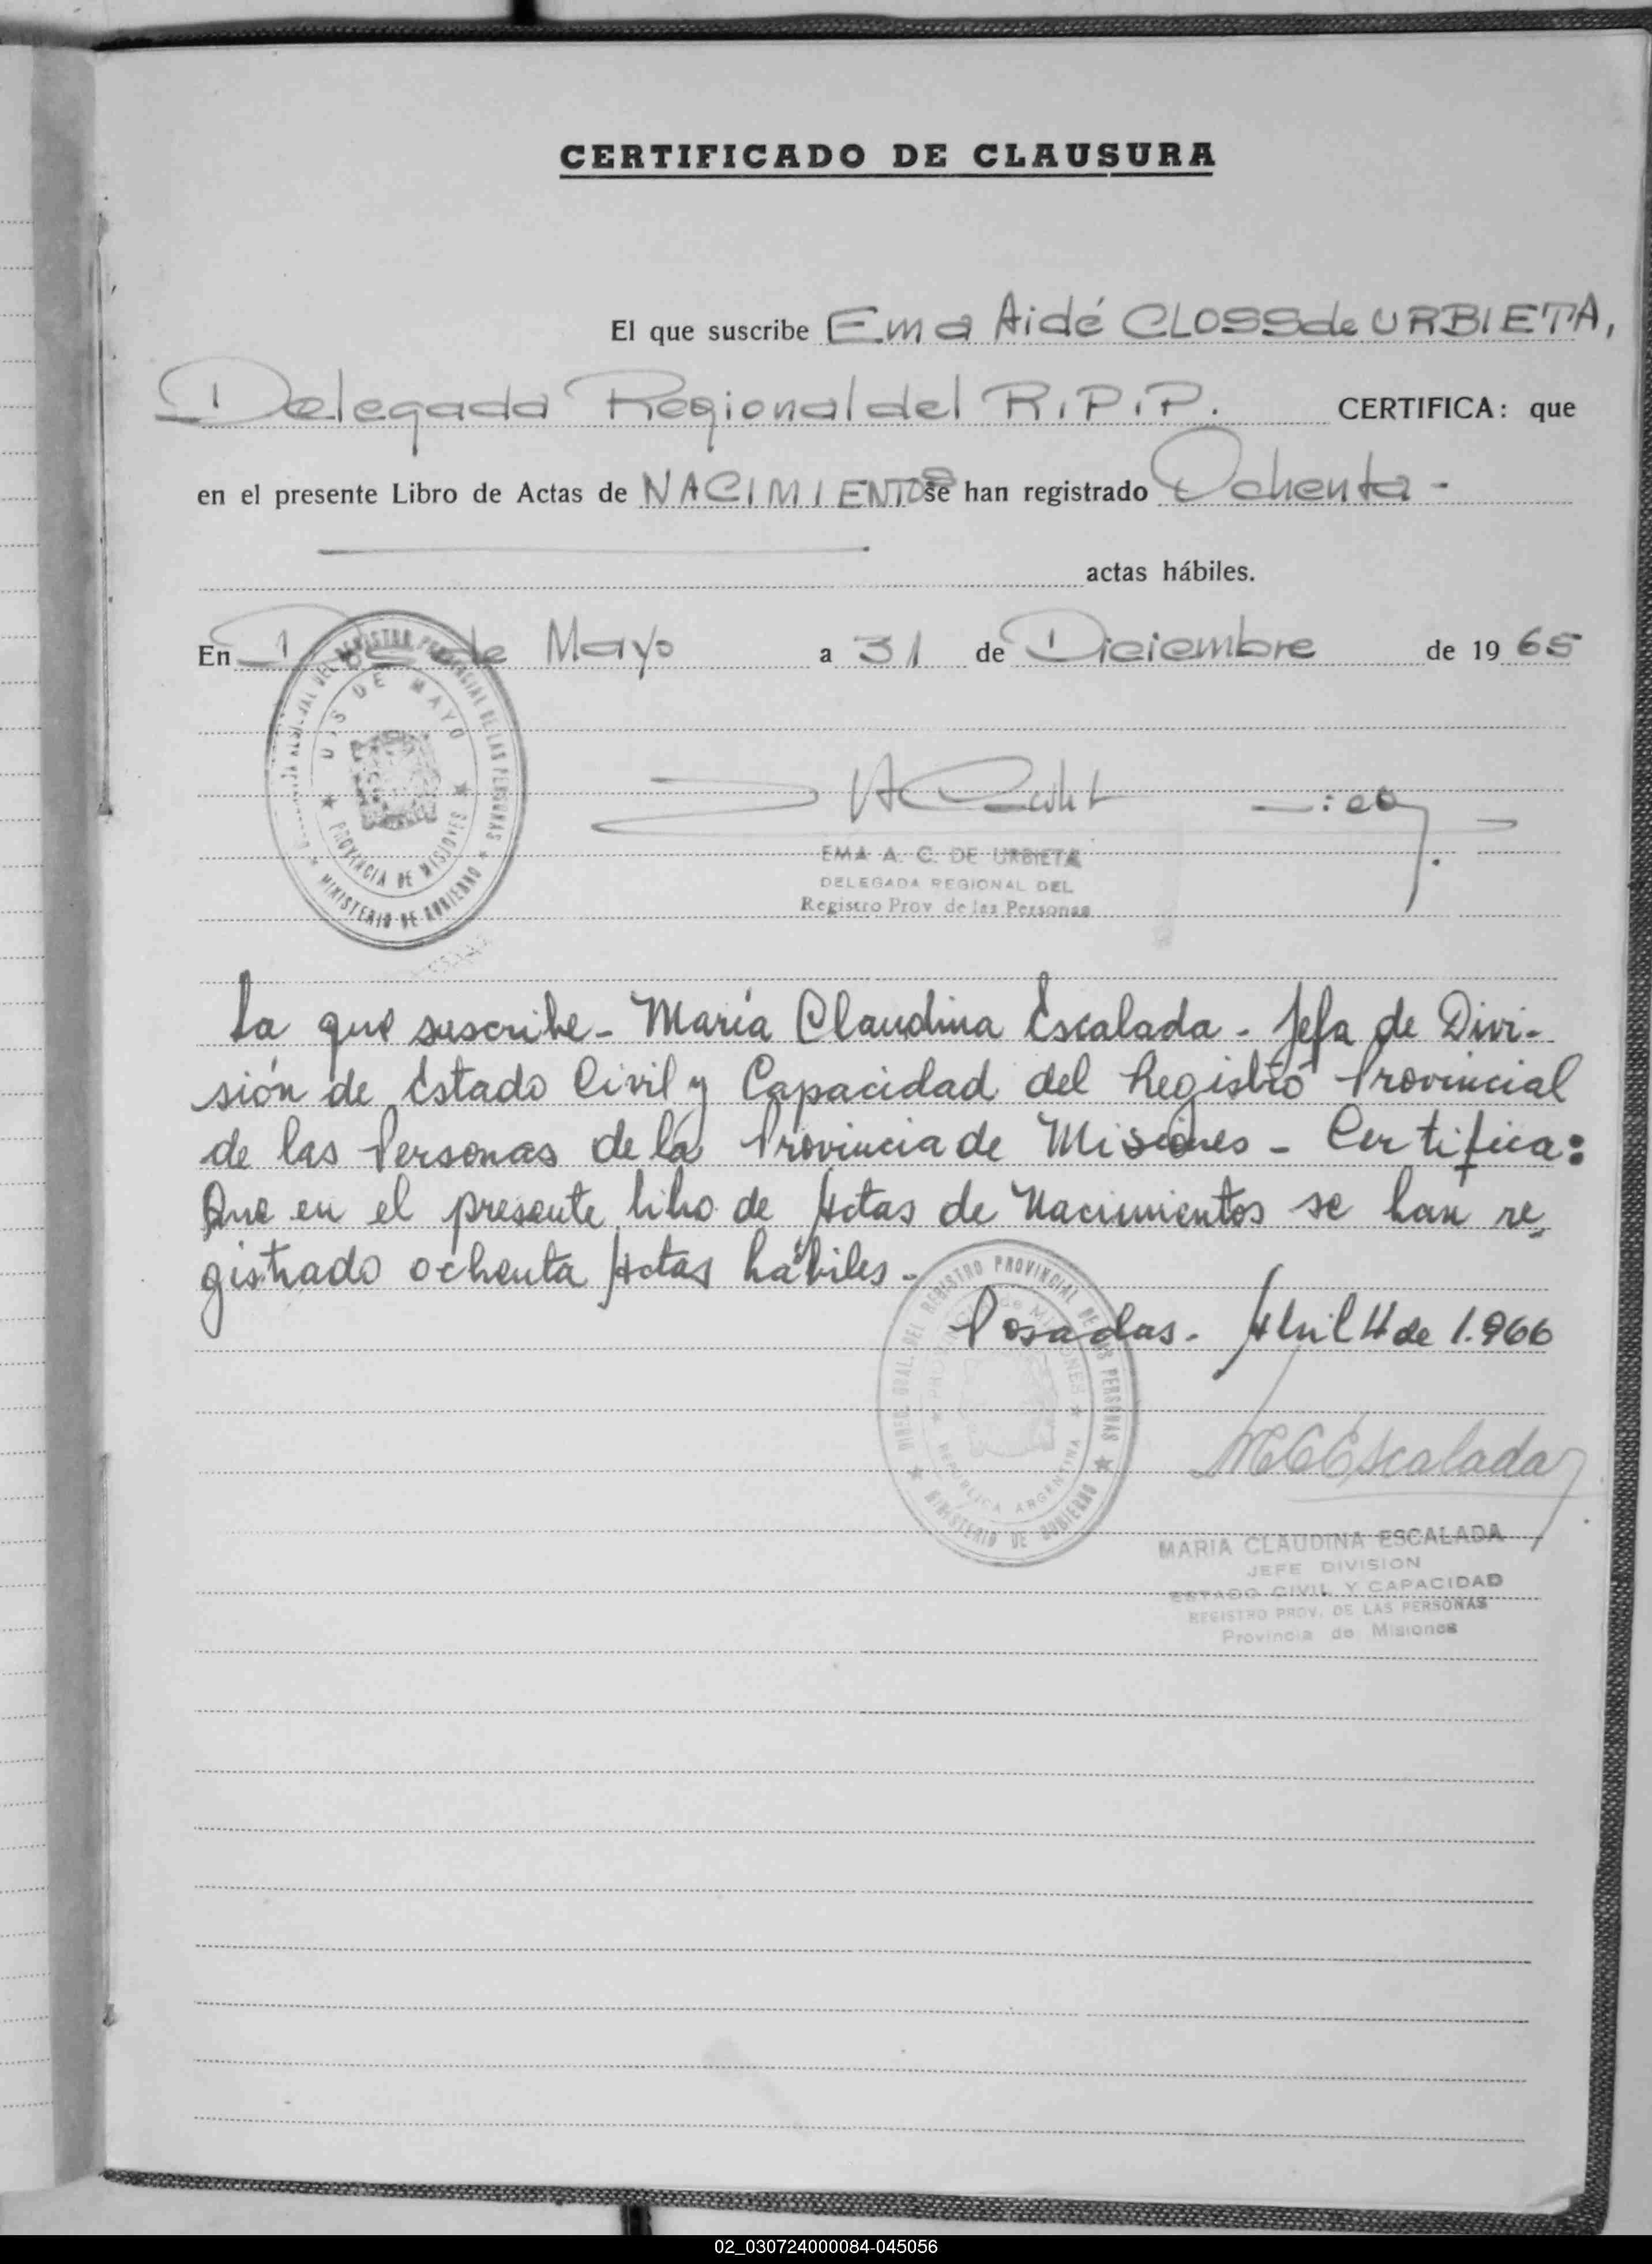 CERTIFICADO DE CLAUSURA
El que suscribe Ema Aidé CLOSS de URBIETA,
Delegada Regional del R.P.P. CERTIFICA: que
en el presente Libro de Actas de NACIMIENTOS se han registrado Ochenta -
actas hábiles.
En Dos de Mayo a 31 de Diciembre de 1965
REGISTRO PROVINCIAL DE LAS PERSONAS
DOS DE MAYO
PROVINCIA DE MISIONES
MINISTERIO DE GOBIERNO
EMA A. C. DE URBIETA
DELEGADA REGIONAL DEL
Registro Prov de las Personas
La que suscribe - María Claudina Escalada - Jefa de Divi-
sión de Estado Civil y Capacidad del Registro Provincial
de las Personas de la Provincia de Misiones - Certifica:
Que en el presente libro de Actas de Nacimientos se han re-
gistrado ochenta Actas hábiles -
Posadas - Abril 4 de 1.966
DIREC. GRAL. DEL REGISTRO PROVINCIAL DE LAS PERSONAS
PROVINCIA de MISIONES
REPUBLICA ARGENTINA
MINISTERIO DE GOBIERNO
MCEscalada
MARIA CLAUDINA ESCALADA
JEFE DIVISION
ESTADO CIVIL Y CAPACIDAD
REGISTRO PROV. DE LAS PERSONAS
Provincia de Misiones
02_030724000084-045056